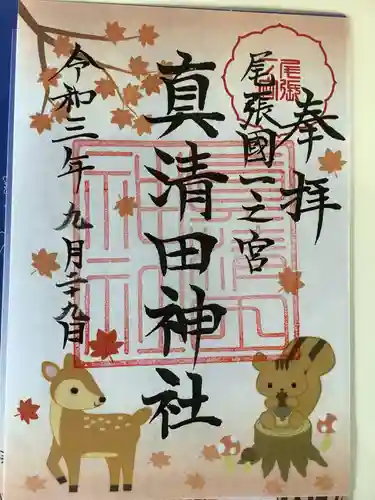 奉拝
尾張國一之宮
真清田神社
令和三年九月二十九日